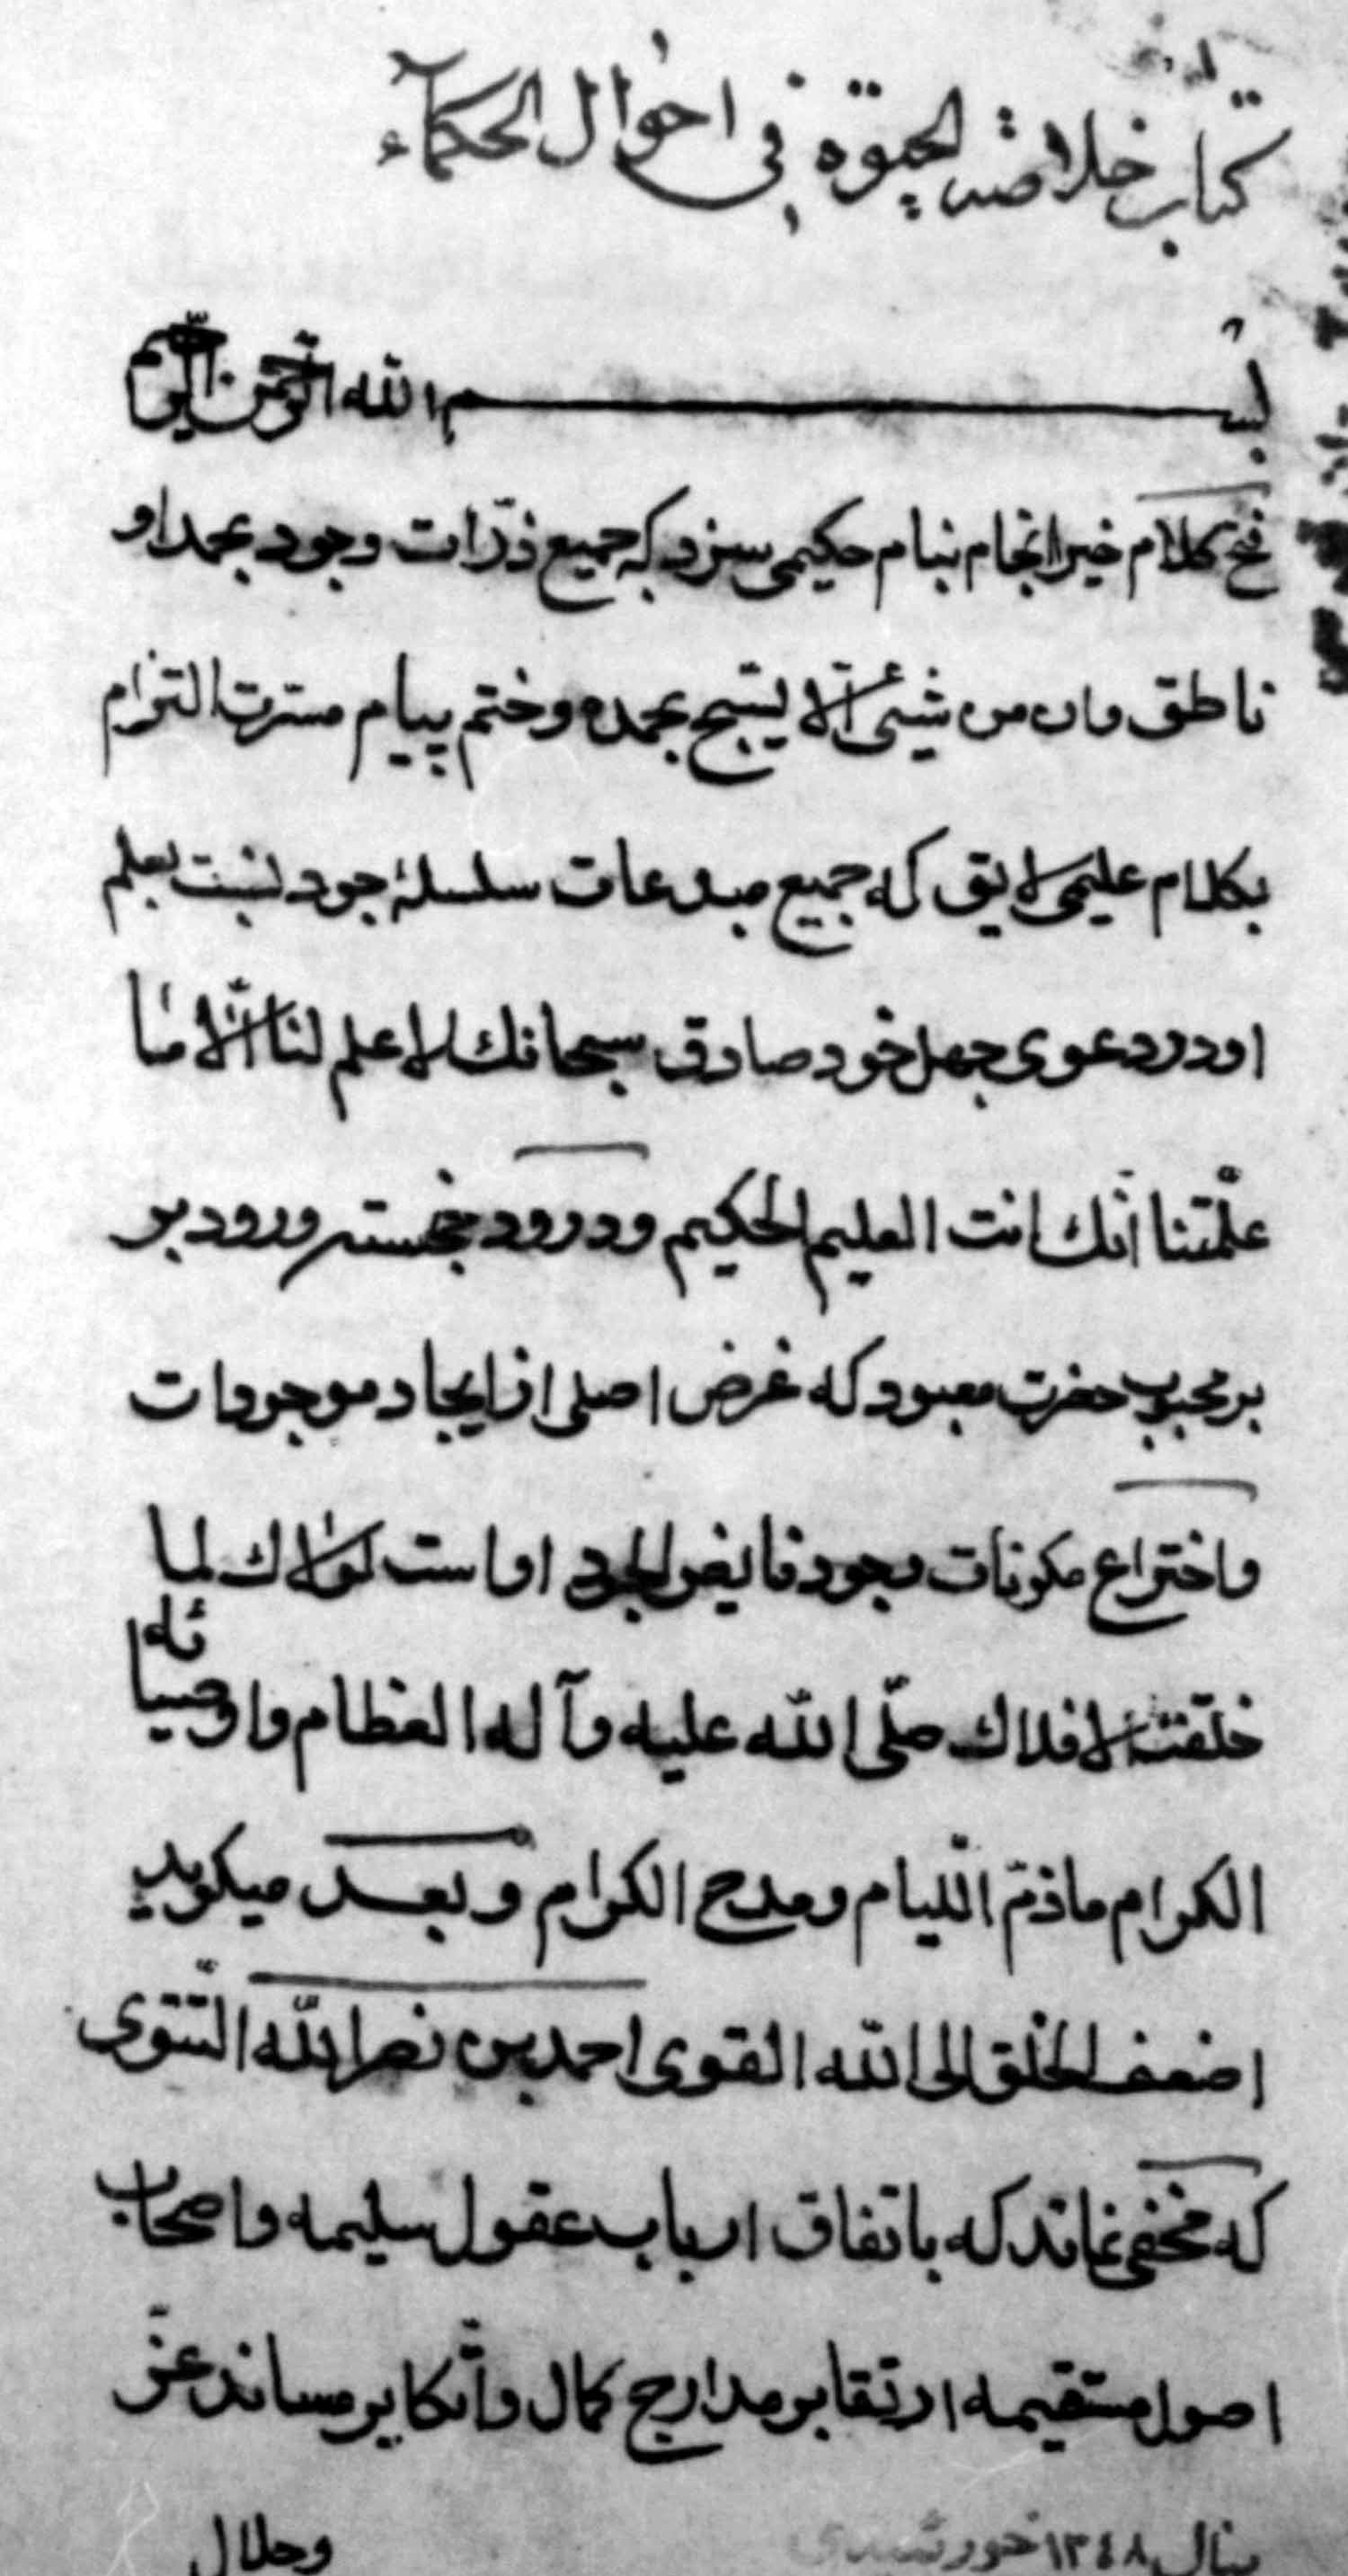 كتاب خلاصة الحيوة في احوال الحكماء
بسم الله الرحمن الرحيم
فتح كلام خير انجام بنام حكيمى سزد كه جميع ذرّات وجود بحمد او
ناطق وان من شيئى الّا يسّبح بحمده وختم پيام مسّرت التزام
بكلام عليمى لايق كه جميع مبدعات سلسلهٔ جود نسبت بعلم
او در دعوى جهل خود صادق سبحانك لا علم لنا الّا ما
علّمتنا انّك انت العليم الحكيم ودرود خجسته ورود بر
بر محبوب حضرت معبود كه غرض اصلى از ايجاد موجودات
واختراع مكونات وجود فايض الجود او است لولاك لما
خلقت الافلاك صلّى الله عليه وآله العظام واوصيائه
الكرام ماذمّ اللّيام ومدح الكرام وبعد ميكويد
اضعف الخلق الى الله القوى احمد بن نصر الله التّتوى
كه مخفى نماند كه باتفاق ارباب عقول سليمه واصحاب
اصول مستقيمه ارتقا بر مدارج كمال واتّكا بر مساند عزّ
وجلال
بسال ١٣٤٨ خورشيدى